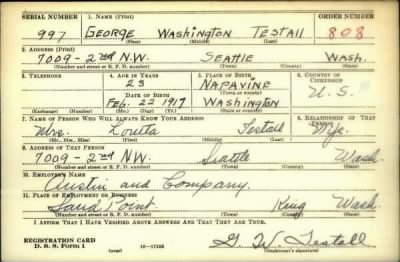 SERIAL NUMBER 1. NAME (Print) ORDER NUMBER
997 GEORGE Washington TESTALL 808
(First) (Middle) (Last)
2. ADDRESS (Print)
7009-2nd N.W. SEATTLE Wash.
(Number and street or R. F. D. number) (Town) (County) (State)
3. TELEPHONE 4. AGE IN YEARS 5. PLACE OF BIRTH 6. COUNTRY OF CITIZENSHIP
23 NAPAVINE
DATE OF BIRTH (Town or county)
Feb. 22 1917 WASHINGTON U.S.
(Exchange) (Number) (Mo.) (Day) (Yr.) (State or country)
7. NAME OF PERSON WHO WILL ALWAYS KNOW YOUR ADDRESS 8. RELATIONSHIP OF THAT PERSON
Mrs. Testall Wife.
(Mr., Mrs., Miss) (First) (Middle) (Last)
9. ADDRESS OF THAT PERSON
7009-2nd N.W. Seattle Wash.
(Number and street or R. F. D. number) (Town) (County) (State)
10. EMPLOYER'S NAME
Austin and Company.
11. PLACE OF EMPLOYMENT OR BUSINESS
Sand Point. King Wash.
(Number and street or R. F. D. number) (Town) (County) (State)
I AFFIRM THAT I HAVE VERIFIED ABOVE ANSWERS AND THAT THEY ARE TRUE.
REGISTRATION CARD
D. S. S. Form 1 (over) 16-17105 G. W. Testall
(Registrant's signature)